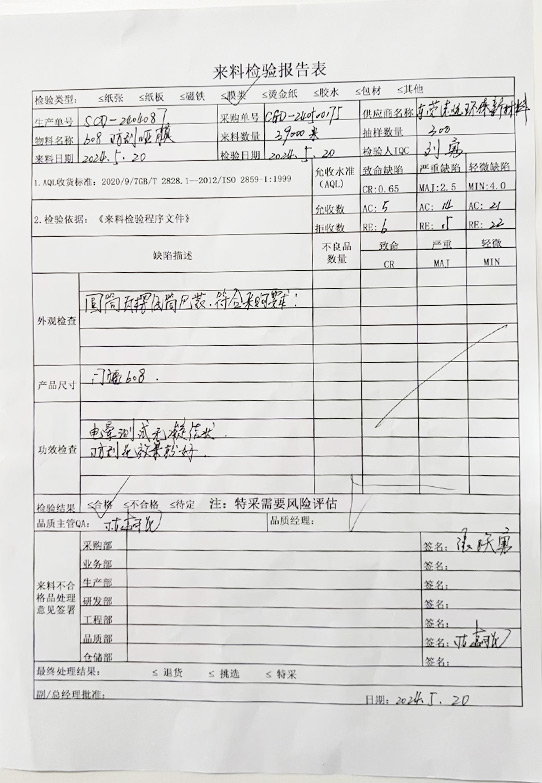 来料检验报告表
检验类型: ≤纸张 ≤纸板 ≤磁铁 ≤膜类 ≤烫金纸 ≤胶水 ≤包材 ≤其他
生产单号 SCD-2406087 采购单号 CGD-24050075 供应商名称
物料名称 608 防刮哑膜 来料数量 39000 米 抽样数量 200
来料日期 2024.5.20 检验日期 2024.5.20 检验人IQC
1.AQL收货标准: 2020/9/7GB/T 2828.1—2012/ISO 2859-1:1999 允收水准(AQL) 致命缺陷 严重缺陷 轻微缺陷
CR:0.65 MAJ:2.5 MIN:4.0
2.检验依据:《来料检验程序文件》 允收数 AC: 5 AC: 14 AC: 21
拒收数 RE: 6 RE: 15 RE: 22
缺陷描述 不良品数量 致命 严重 轻微
CR MAJ MIN
外观检查
产品尺寸 门幅608.
功效检查
电晕测试无
防刮花效果较好.
检验结果 ≤合格 ≤不合格 ≤待定 注: 特采需要风险评估
品质主管QA: 品质经理:
来料不合格品处理意见签署
采购部 签名:
业务部 签名:
生产部 签名:
研发部 签名:
工程部 签名:
品质部 签名:
仓储部 签名:
最终处理结果: ≤ 退货 ≤ 挑选 ≤ 特采
副/总经理批准: 日期: 2024.5.20